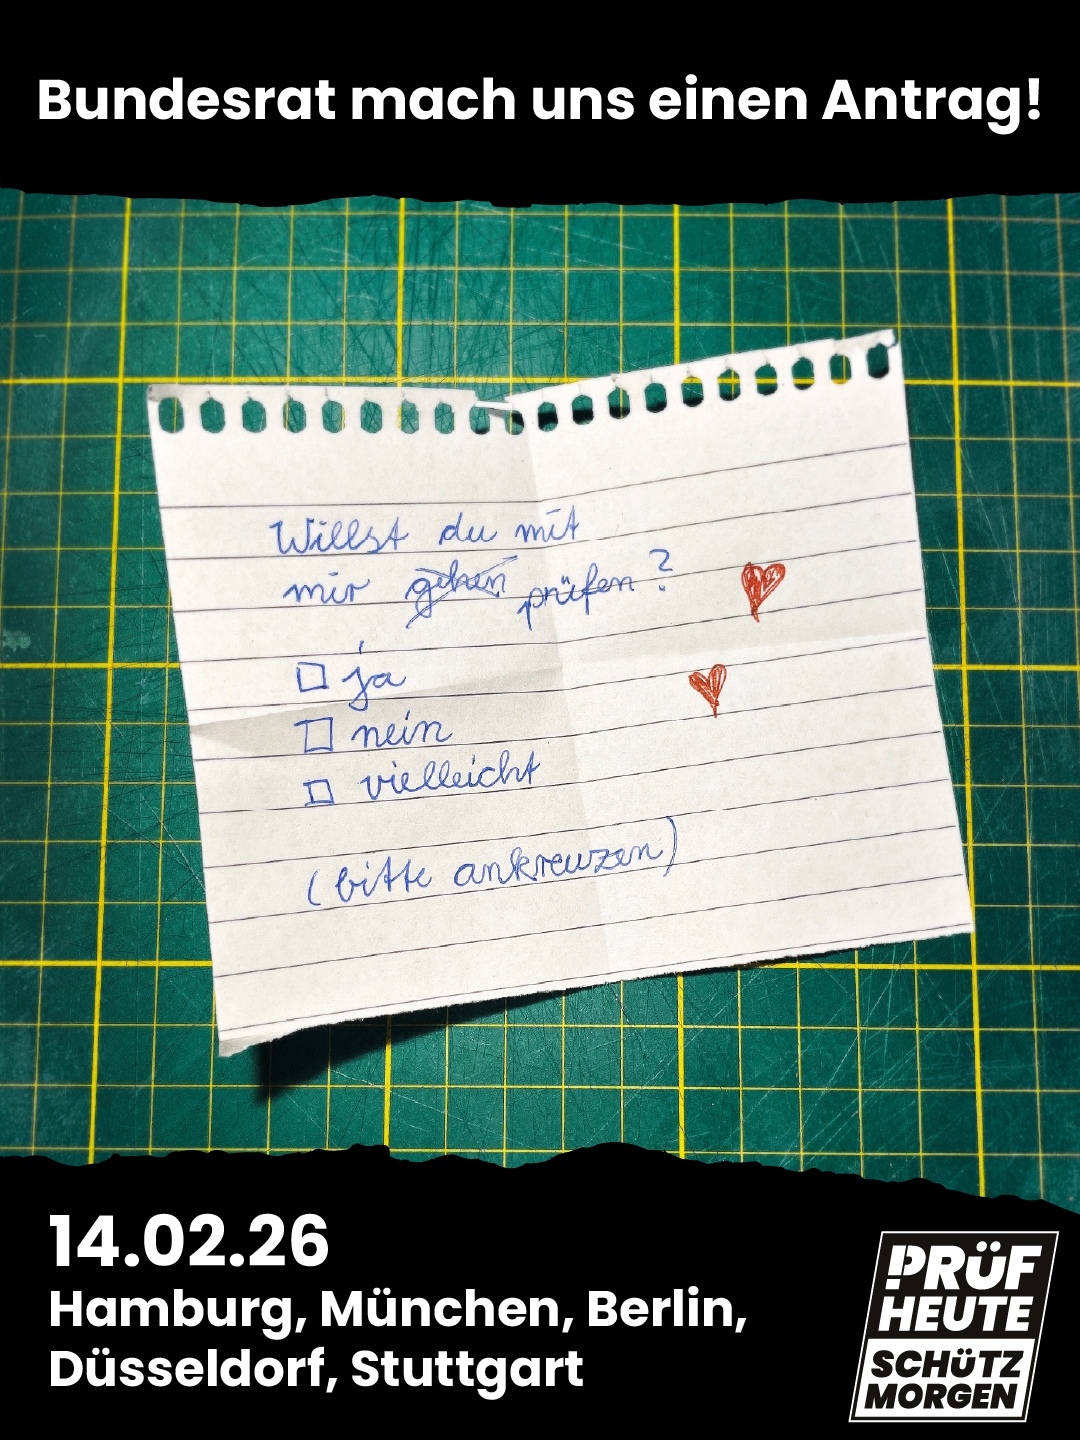 Bundesrat mach uns einen Antrag!
Willst du mit
mir gehen prüfen?
ja
nein
vielleicht
(bitte ankreuzen)
14.02.26
Hamburg, München, Berlin,
Düsseldorf, Stuttgart
PRÜF
HEUTE
SCHÜTZ
MORGEN